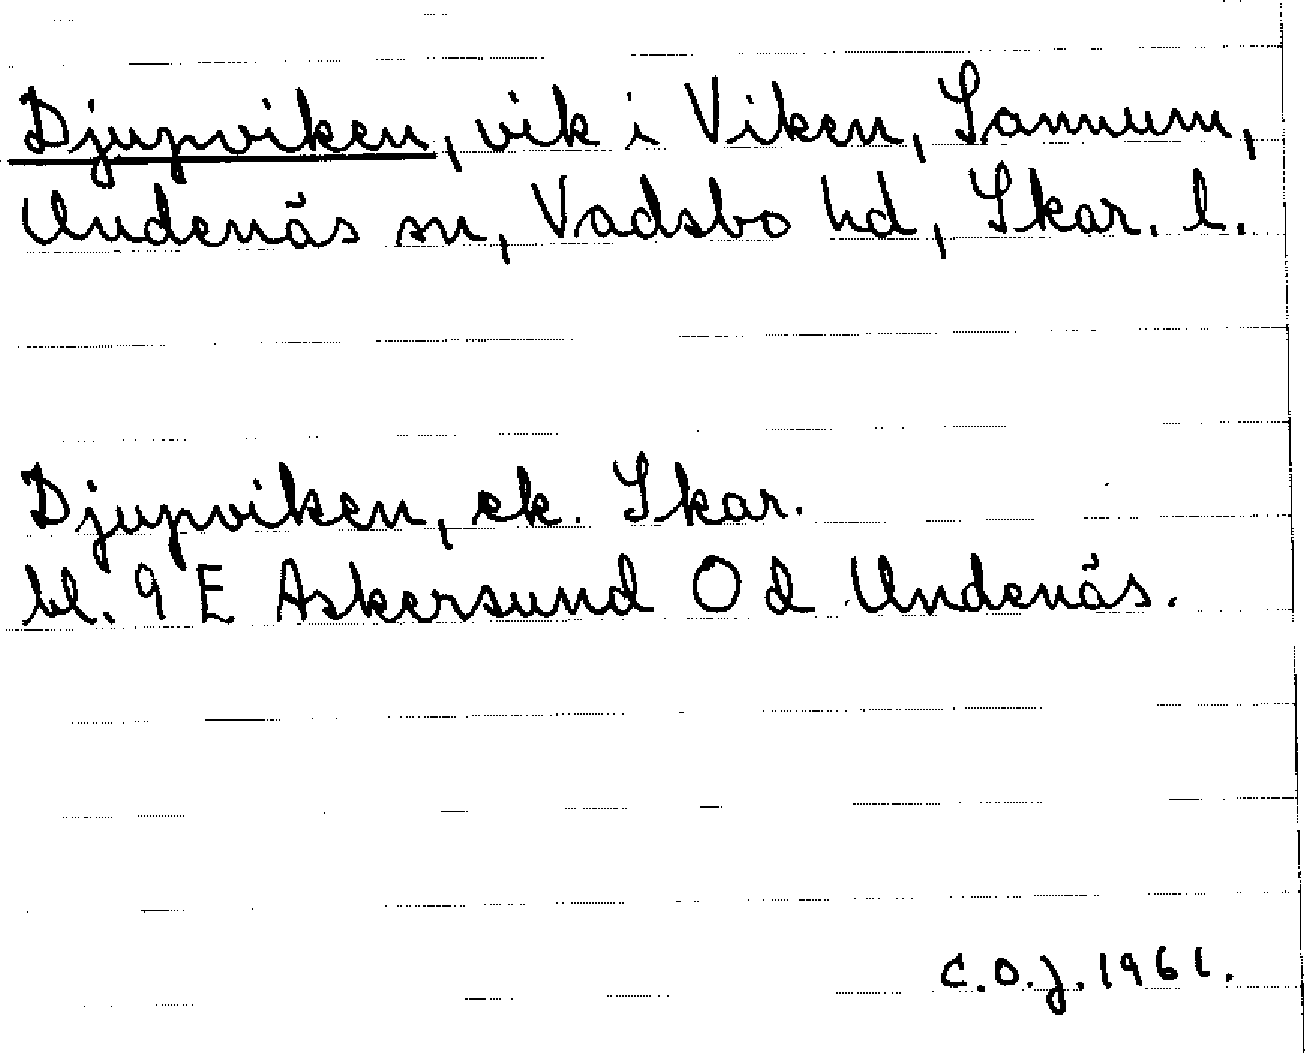 Djupviken, vik i Viken, Sannum,
Undenäs sn, Vadsbo hd, Skar. l.
Djupviken, ek. Skar.
bl. 9 E Askersund O d Undenäs.
C.O.J. 1961.